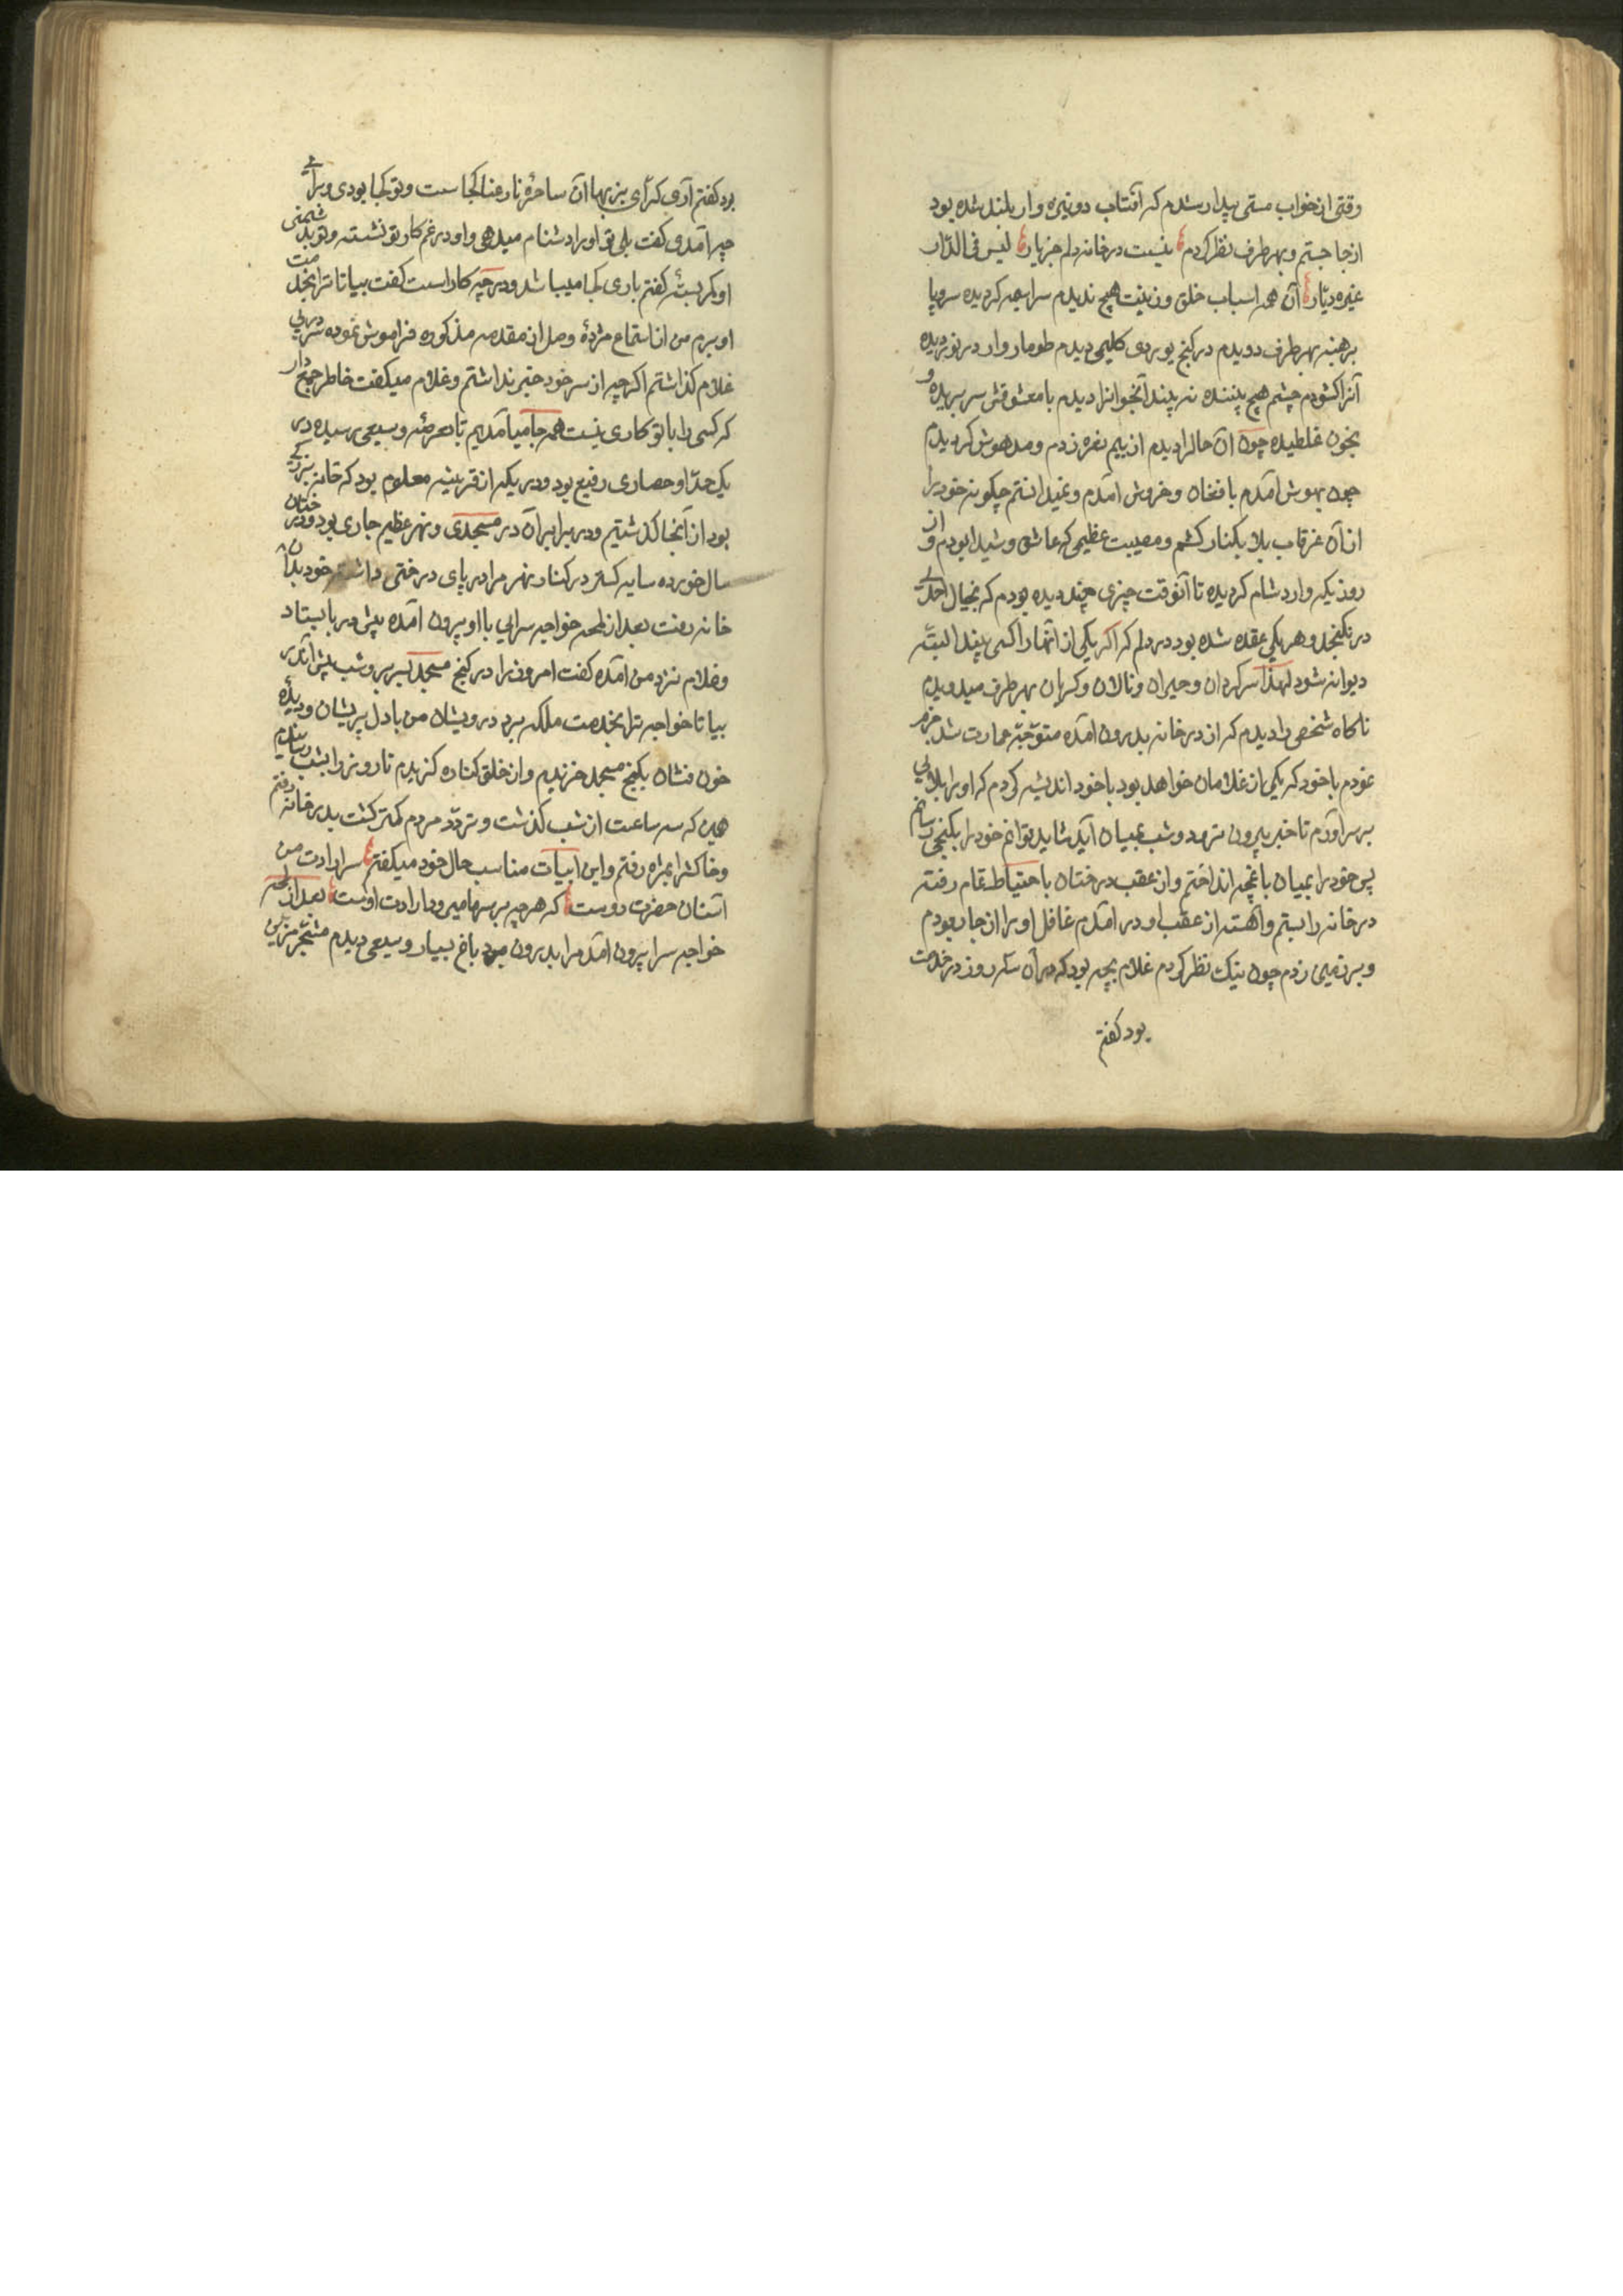 وقتی از خواب مستی بیدار شدم که آفتاب دو نیزه وار بلند شده بود
از جا جستم و بهر طرف نظر کردم نیست در خانه دلم جز یار لیس فی الدار
غیره دیار آن همه اسباب خلق و زینت هیچ ندیدم سراسیمه کردیده سر و پا
برهنه بهر طرف دویدم در کنج یوردی کلیمی دیدم طومار وار در نوردیده
آنرا کشودم چشم هیچ بیننده نه بیند آنجوانرا دیدم با معشوقش سر بریده و
بخون غلطیده چون آن حالرا دیدم از بیم نعره زدم و مدهوش کردیدم
چون بهوش آمدم با فغان و خروش آمدم و نمیدانستم چکونه خود را
از آن غرقاب بلا بکنار کشم و مصیبت عظیمی که عاشق و شیدا بودم و از
روزیکه وارد شام کردیده تا آنوقت چیزی چند دیده بودم که بخیال احدی
در نکنجد و هر یکی عقده شده بود در دلم که اکر یکی از آنها را کسی بیند البته
دیوانه شود لهذا سرکردان و حیران و نالان و کریان بهر طرف میدویدم
ناکاه شخصی را دیدم که از در خانه بدرون آمده متوجه عمارت شد جزم
نمودم با خود که یکی از غلامان خواهد بود با خود اندیشه کردم که او را بلائی
بر سر آورم تا خبر بیرون نرود و شب بمیان آید شاید توانم خود را بکنجی رسانم
پس خود را بمیان باغچه انداختم و از عقب درختان باحتیاط تمام رفته
در خانه را بستم و آهسته از عقب او در آمدم غافل او را از جا ربودم
و بر زمین زدم چون نیک نظر کردم غلام بچه بود که در آن سه روز در خدمت
بود کفتم
بود کفتم آری کرای بیبها آن ساحره نارعنا کجاست و تو کجا بودی و برای
چه آمدی کفت بلی تو او را دشنام میدهی و او در غم کار تو نشسته و تو بدشمنی
او کمر بسته کفتم باری کجا میباشد و در چه کار است کفت بیا تا ترا بخدمت
او برم من از استماع مژدهٔ وصل از مقدمه مذکوره فراموش نموده سر در پی
غلام کذاشتم اکرچه از سر خود خبر نداشتم و غلام میکفت خاطر جمع دار
که کسی را با تو کاری نیست همه جا میآمدیم تا بعرضه وسیعی رسیده در
یک حد او حصاری رفیع بود و در یکه از قرینه معلوم بود که خانه بزرکی
بود از آنجا کذشتیم و در برابر آن در مسجدی و نهر عظیم جاری بود و درختان
سال خورده سایه کستر در کنار نهر مرا در پای درختی داشته خود بدان
خانه رفت بعد از لمحه خواجه سرایی با او بیرون آمده پیش در بایستاد
و غلام نزد من آمده کفت امروز را در کنج مسجد بسر بر و شب پیش آندر
بیا تا خواجه ترا بخدمت ملکه برد درویشان من با دل پریشان و دیدهٔ
خون فشان بکنج مسجد خزیدم و از خلق کناره کزیدم تا روز را بشب رسانیدم
همین که سه ساعت از شب کذشت و تردد مردم کمتر کشت بدر خانه رفتم
و خاکش را بمژه رفتم و این ابیات مناسب حال خود میکفتم سر ارادت من
آستان حضرت دوست که هر چه بر سر ما میرود ارادت اوست بعد از لمحه
خواجه سرا بیرون آمد مرا بدرون برد باغ بسیار وسیعی دیدم مشجر مزین